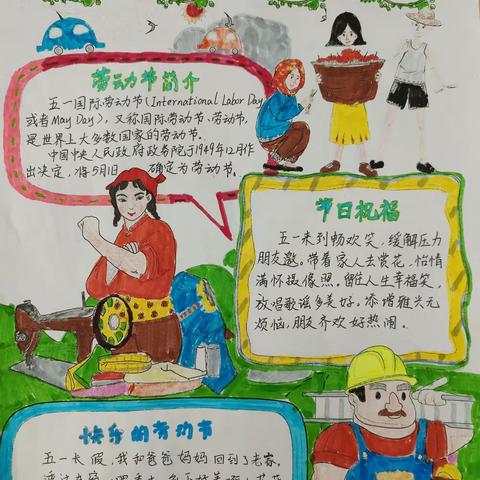 劳动节简介
五一国际劳动节(International Labor Day
或者May Day),又称国际劳动节、劳动节,
是世界上大多数国家的劳动节。
中国中央人民政府政务院于1949年12月作
出决定,将5月1日 确定为劳动节。
节日祝福
五一来到畅欢笑,缓解压力
朋友邀。带着家人去赏花,怡情
满怀摄像照。留住人生幸福笑,
放唱歌谣多美好。添增雅兴元
烦恼,朋友齐欢好热闹。
快乐的劳动节
五一长假,我和爸爸妈妈回到了老家。